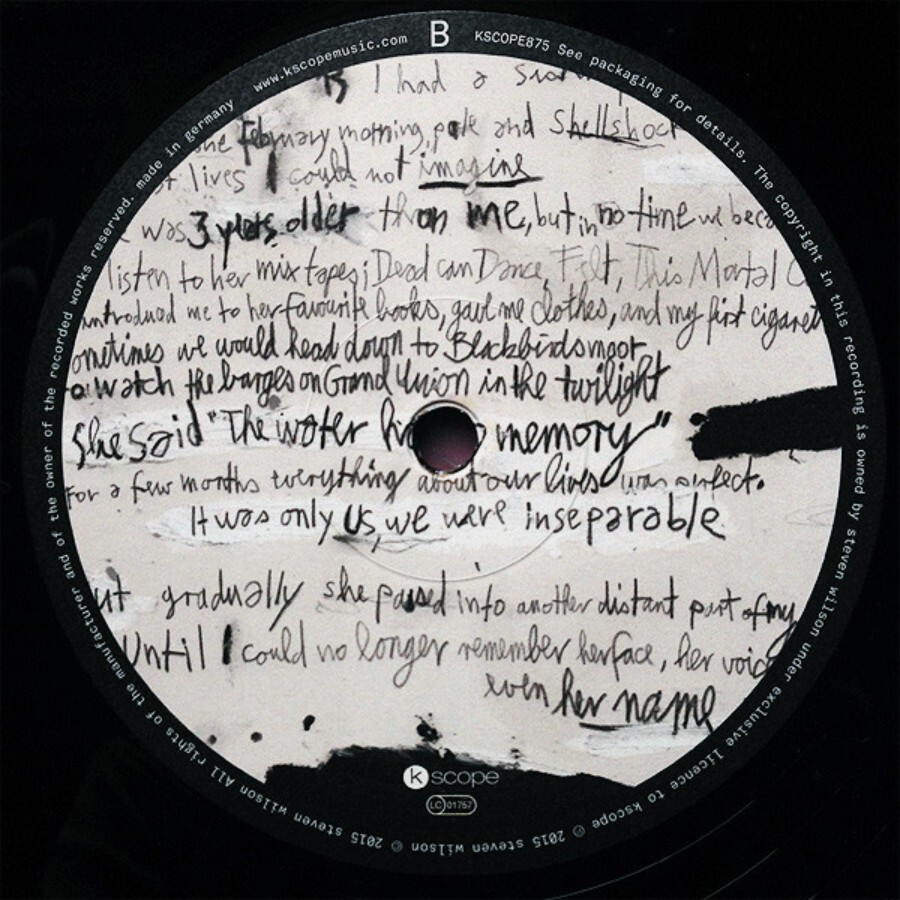 B
www.kscopemusic.com
KSCOPE875 See packaging for details. The copyright in this recording is owned by steven wilson under exclusive licence to kscope © 2015 steven wilson © 2015 steven wilson All rights of the manufacturer and of the owner of the recorded works reserved. made in germany
I had a
one february morning, pale and Shellshock
lives I could not imagine
was 3 years older than me, but in no time we beca
listen to her mixtapes; Dead can Dance, Felt, This Mortal
introduced me to her favourite books, gave me clothes, and my first cigaret
ometimes we would head down to Blackbirds moor
o watch the barges on Grand Union in the twilight
She Said "The water h memory"
For a few months everything about our lives was perfect.
It was only us, we were inseparable
ut gradually she passed into another distant part of my
Until I could no longer remember her face, her voic
even her name
k scope
LC 01757